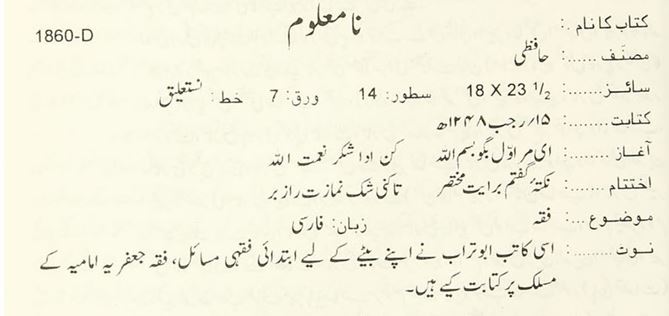 کتاب کا نام : نا معلوم 1860-D
مصنّف ....: حافظی
سائز.......: 18 X 23 1/2 سطور: 14 ورق: 7 خط: نستعلیق
کتابت.....: ۱۵/رجب ۱۲۴۸ھ
آغاز.......: ای مر اوّل بگو بسم اللہ کن ادا شکر نعمت اللہ
اختتام ....: نکتۂ گفتم برایت مختصر تا کنی شک نمازت راز بر
موضوع ...: فقہ زبان: فارسی
نوٹ.......: اسی کاتب ابوتراب نے اپنے بیٹے کے لیے ابتدائی فقہی مسائل، فقہ جعفریہ امامیہ کے
مسلک پر کتابت کیے ہیں۔